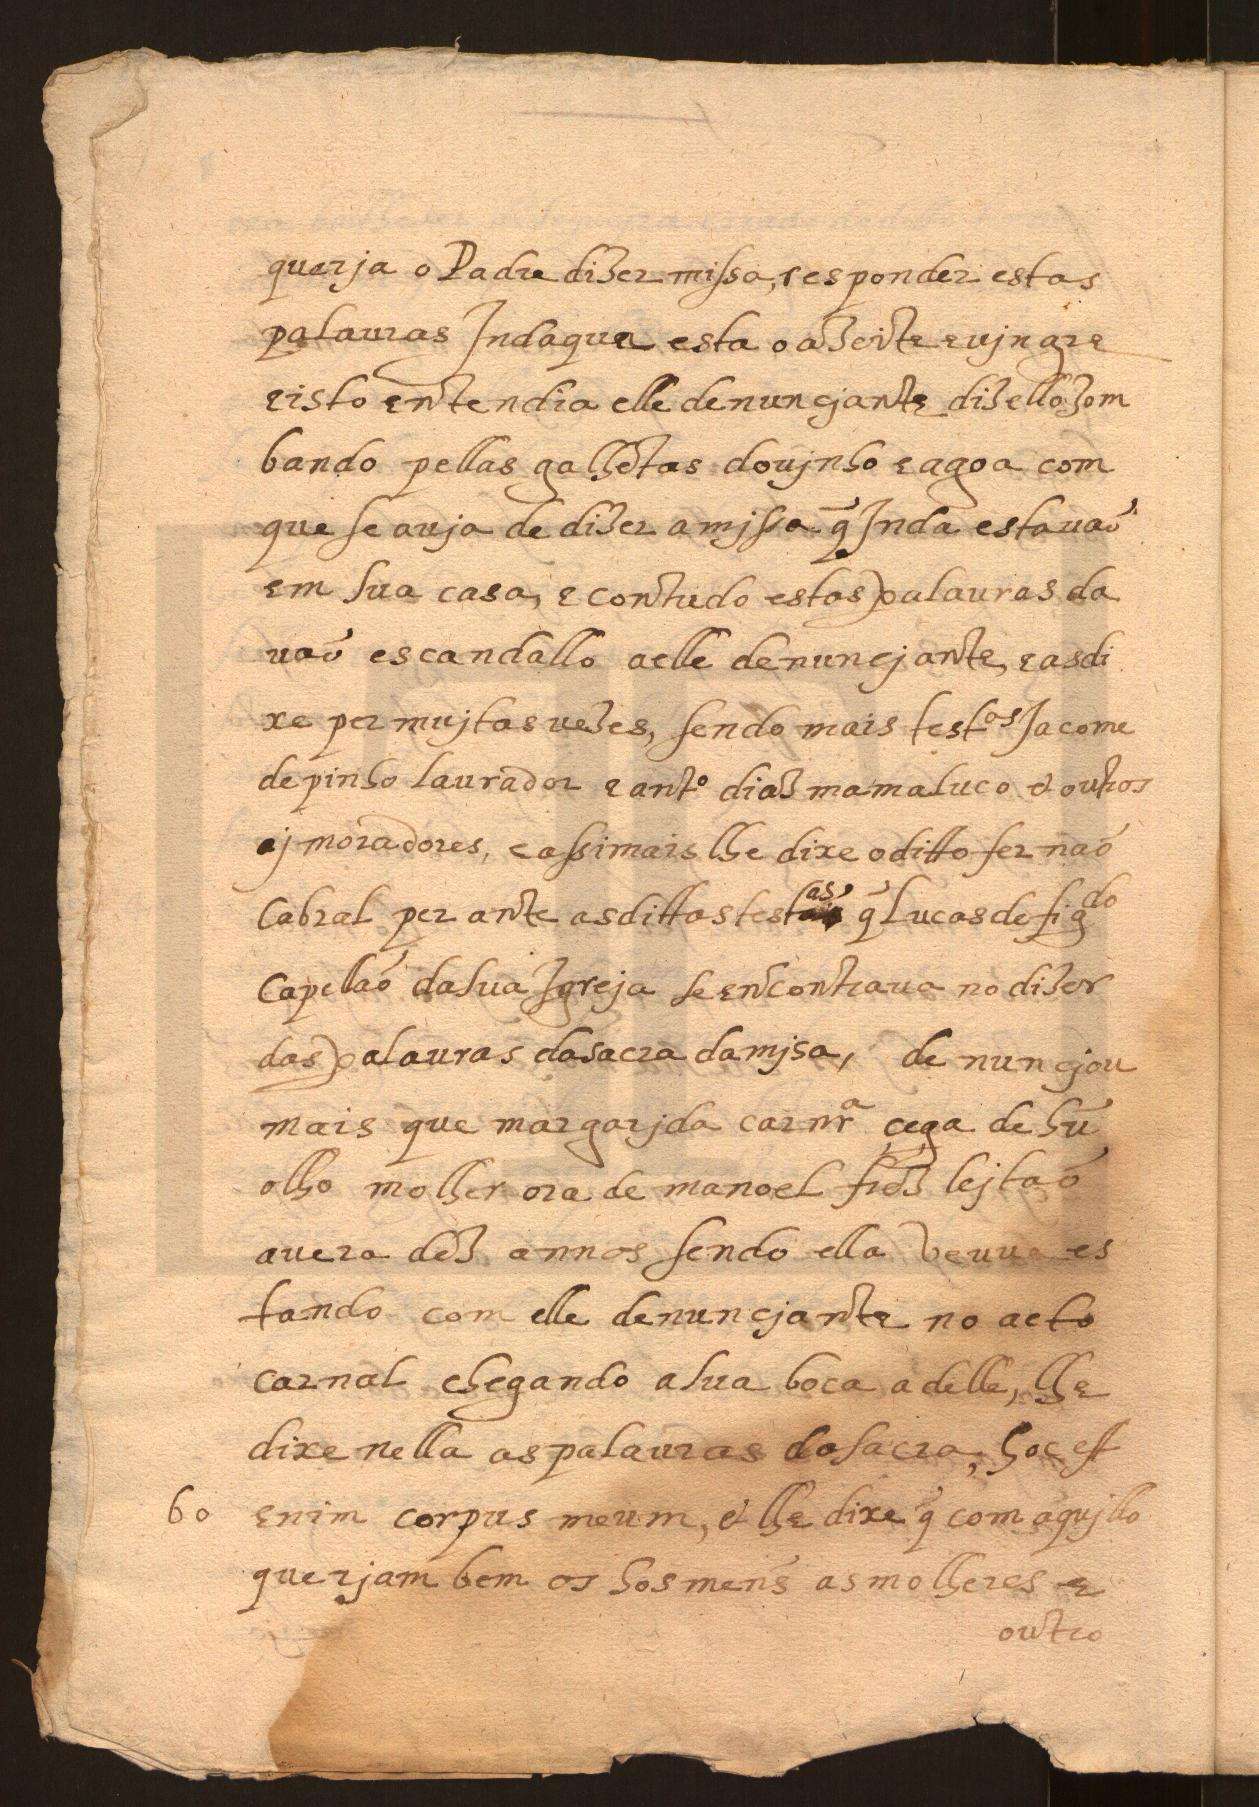 querja o Padre dizer missa, responder estas
palauras Indaque esta o azeite e vjnagre
e isto entendia elle denuncjante dizello zom
bando pellas galhetas do vjnho e agoa com
que se auja de dizer a mjssa q̃ Inda estauaõ
em sua casa, e contudo estas palauras da
uaõ escandallo a elle denuncjante, e as di
xe per mujtas uezes, sendo mais testas Jacome
de pinho laurador e anto diaz mamaluco & outros
aj moradores, e assi mais lhe dixe o ditto fernaõ
Cabral perante as dittas testas q̃ Lucas de figdo
Capellaõ da sua Igreja se encontraua no dizer
das palauras da sacra da mjsa, denuncjou
mais que margarjda carnra cega de hũ
olho molher ora de manoel frõz lejtaõ
auera dez annos sendo ella veuua es
tando com elle denuncjante no acto
carnal chegando a sua boca a delle, lhe
dixe nella as palauras da sacra, hoc est
60 enim corpus meum, & lhe dixe q̃ com aqujllo
querjam bem os hosmens as molheres e
outro